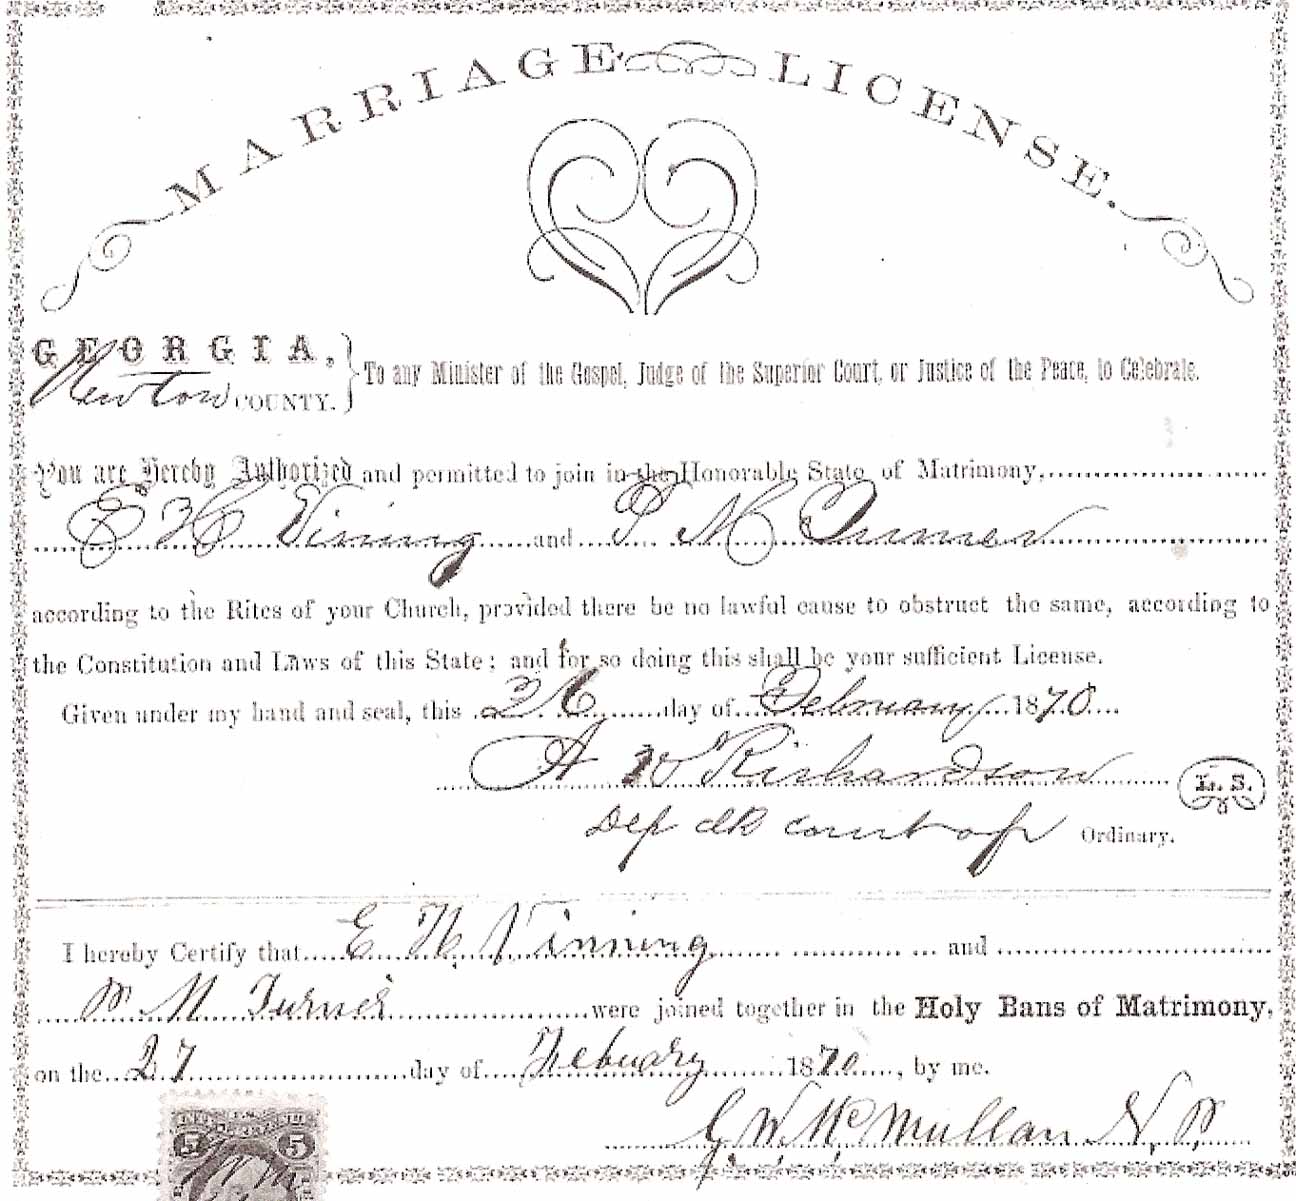 MARRIAGE LICENSE.
GEORGIA,
Newton COUNTY.
To any Minister of the Gospel, Judge of the Superior Court, or Justice of the Peace, to Celebrate.
You are Hereby Authorized and permitted to join in the Honorable State of Matrimony,
E H Vining and P M Turner
according to the Rites of your Church, provided there be no lawful cause to obstruct the same, according to
the Constitution and Laws of this State; and for so doing this shall be your sufficient License.
Given under my hand and seal, this 26 day of February 1870
A W Richardson L. S.
Dep clk court of Ordinary.
I hereby Certify that E H Vinning and
P M Turner were joined together in the Holy Bans of Matrimony,
on the 27 day of Febuary 1870, by me.
G. W. McMullan N. P.
5 5